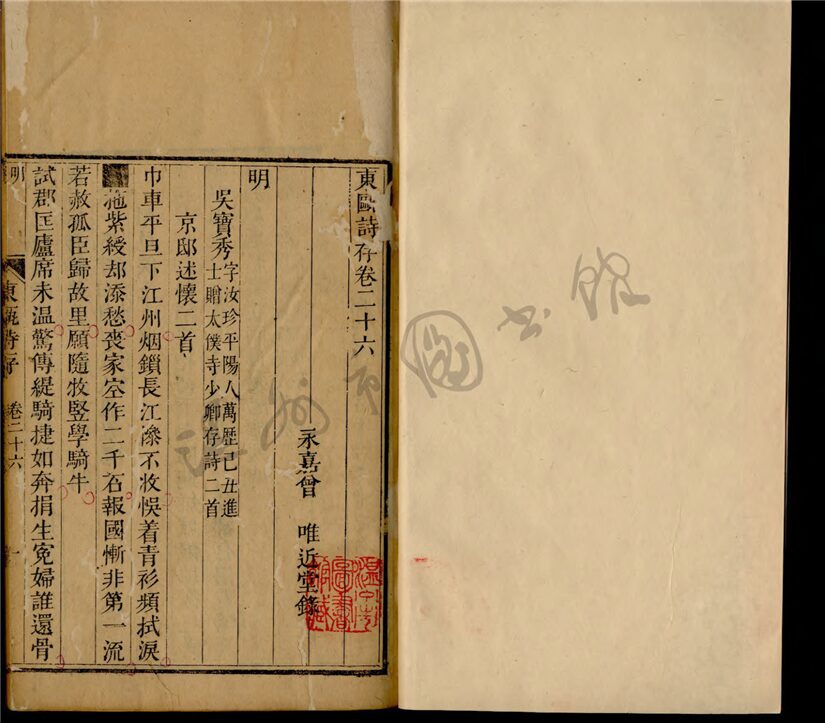 東甌詩存卷二十六
永嘉曾 唯近堂錄
明
吳寶秀字汝珍平陽人萬歷己丑進
士贈太僕寺少卿存詩二首
京邸述懷二首
巾車平旦下江州烟鎖長江滲不收悞着青衫頻拭淚
拖紫綬却添愁喪家空作二千石報國慚非第一流
若赦孤臣歸故里願隨牧豎學騎牛
試郡匡廬席未温驚傳緹騎捷如奔捐生寃婦誰還骨
明
東甌詩存 卷二十六 一
温州市圖書館藏
温州市圖書館